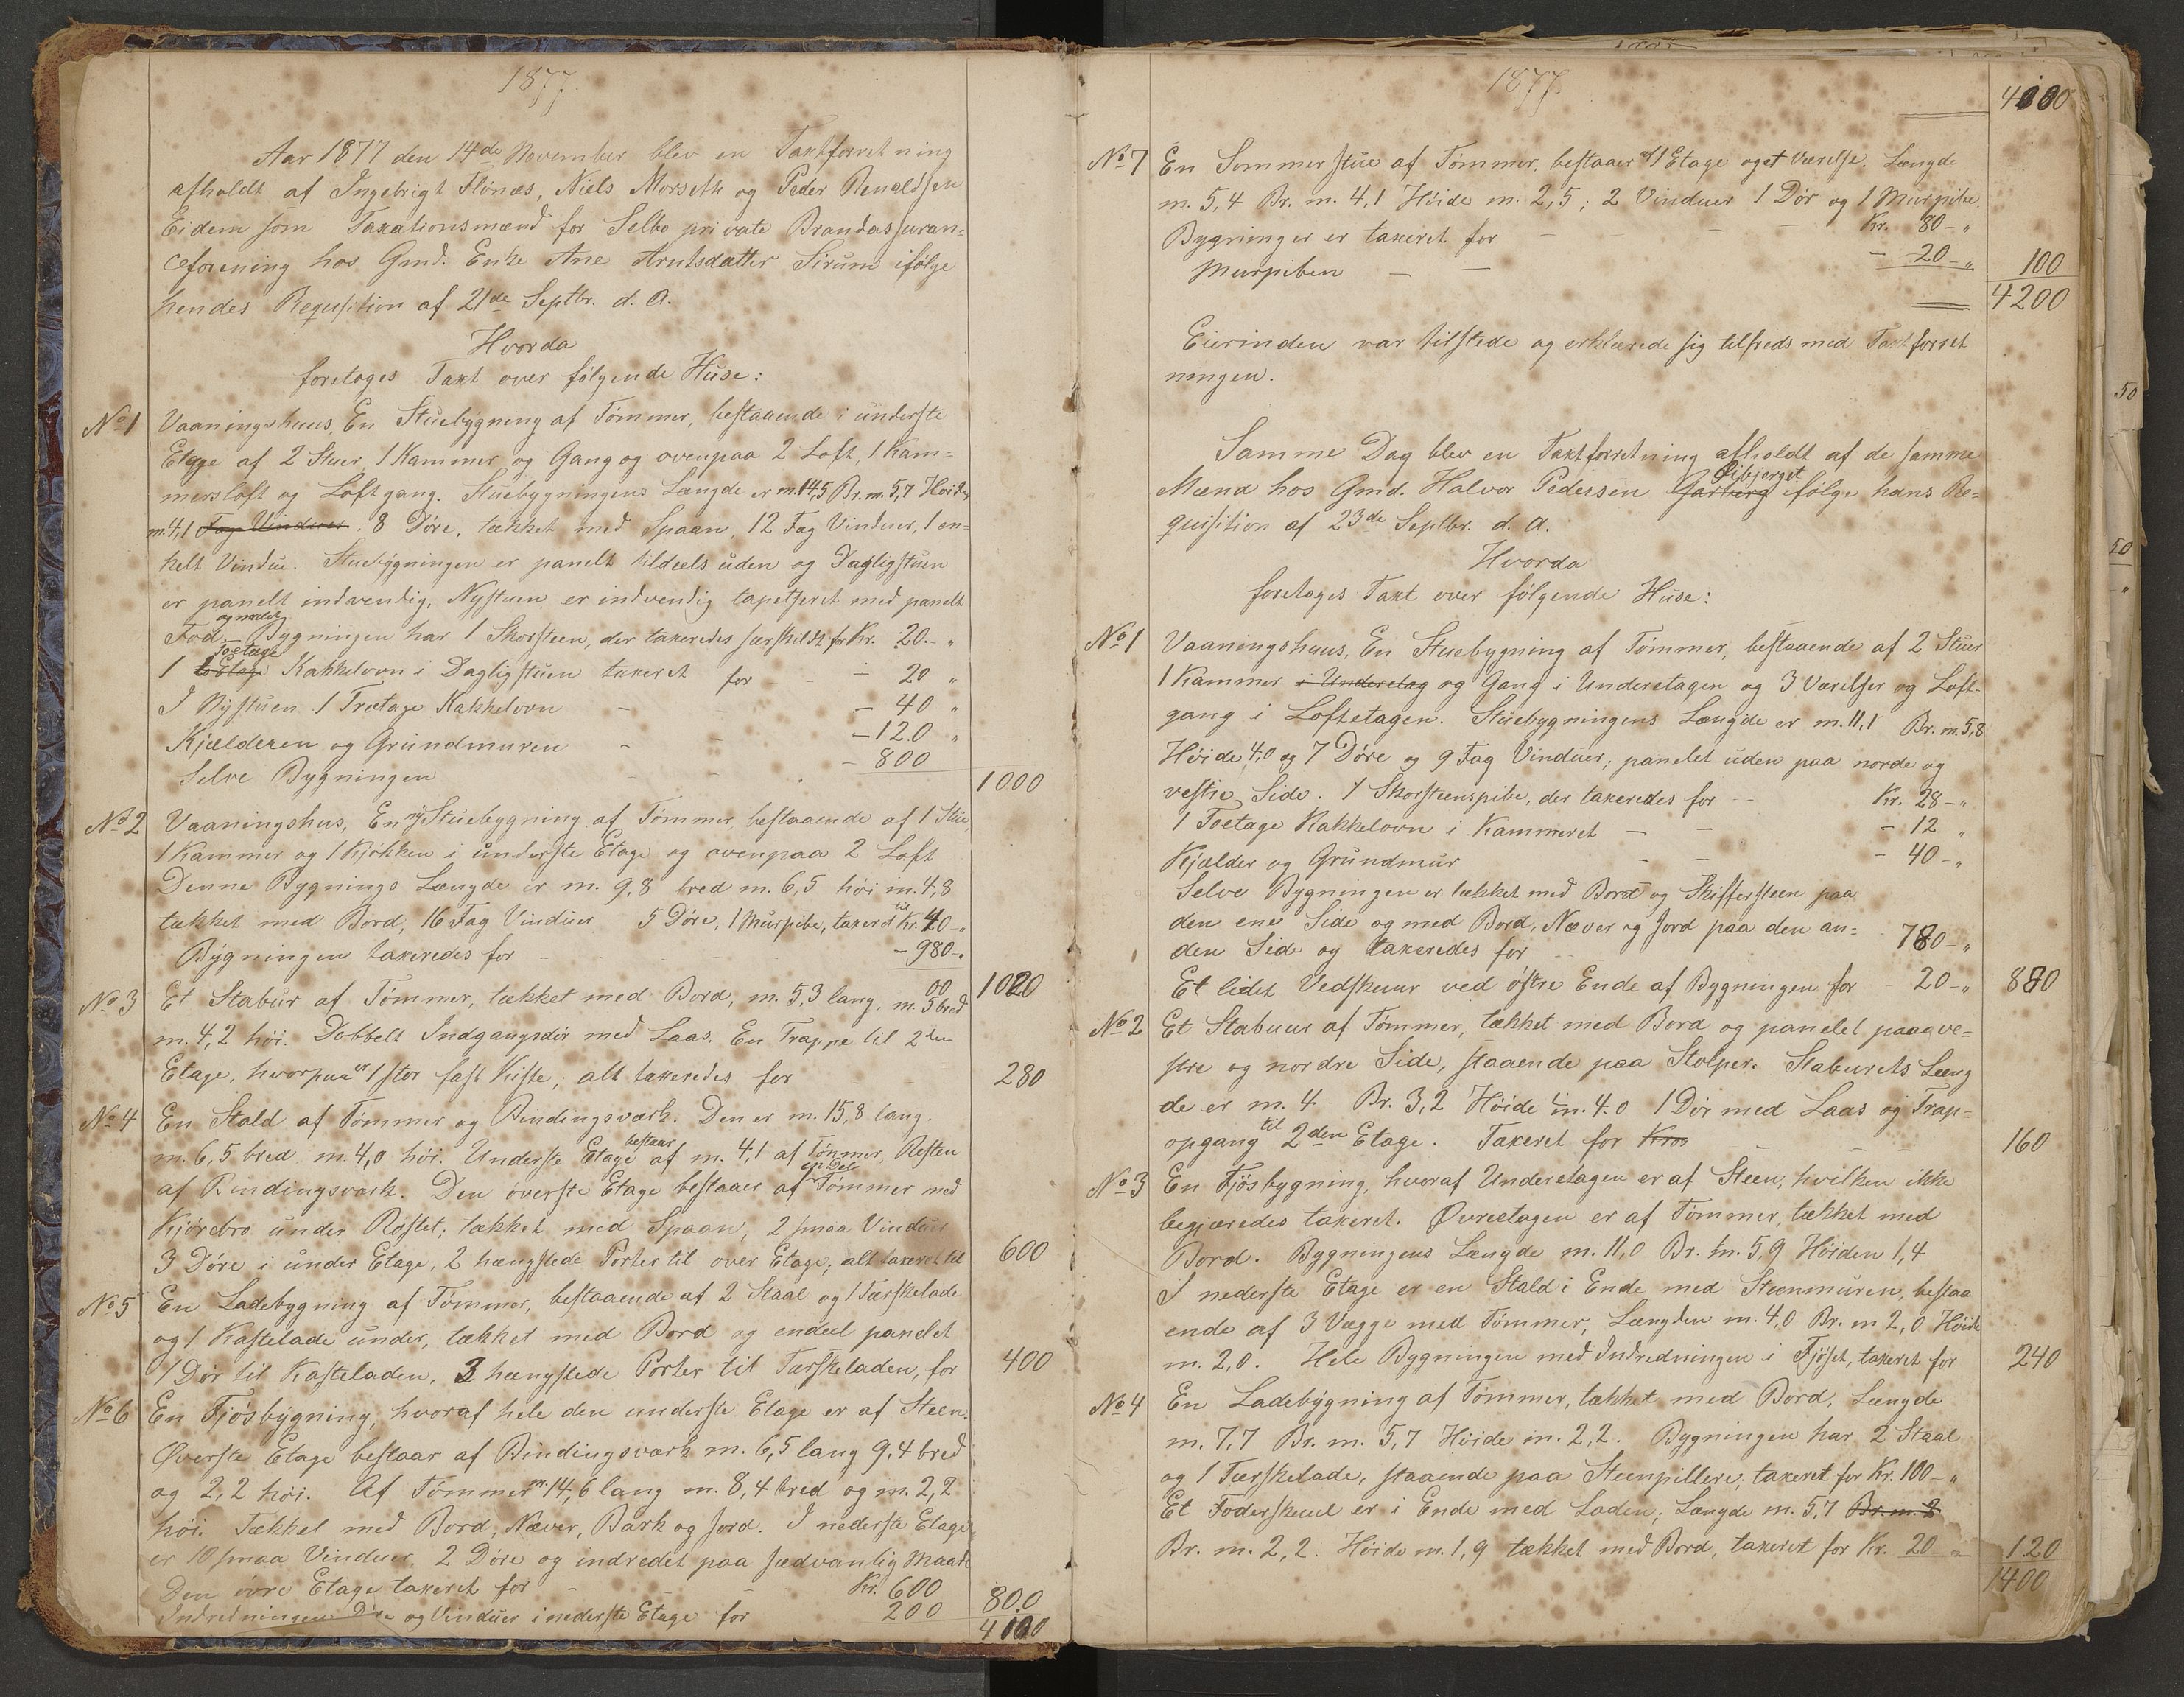 1877.
Aar 1877 den 14de November blev en Taxtforretning
afholdt af Ingebrigt Flönæs, Niels Morseth og Peder Renaldsen
Eidem som Taxationsmænd for Selbo private Brandassuran=
ceforening hos Gmd. Enke Ane Arntsdatter Sirum ifölge
hendes Requsition af 21de Septbr. d. A.
Hvorda
foretoges Taxt over følgende Huse:
No 1 Vaaningshuus, En Stuebygning af Tömmer, bestaaende i underste
Etage af 2 Stuer, 1 Kammer og Gang og ovenpaa 2 Loft, 1 Kam=
mersloft og Loftgang. Stuebygningens Længde er m. 14,5 Br. m. 5,7 Høide
m. 4,1 Fag Vinduer 8 Döre, tækket med Spaan, 12 Fag Vinduer, 1 en=
kelt Vindue. Stuebygningen er panelt tildeels uden og Dagligstuen
er panelt indvendig, Nystuen er indvendig tapetseret med panelt
Fod - Bygningen har 1 Skorsteen, der taxeredes særskildt for Kr. 20 - "
1 to Etage Toetage Kakkelovn i Dagligstuen taxeret for - 20 "
I Nystuen 1 Treetage Kakkelovn - 40 "
Kjælderen og Grundmuren - 120 "
Selve Bygningen - 800 1000
No 2 Vaaningshus, En ny Stuebygning af Tömmer, bestaaende af 1 Stue,
1 Kammer og 1 Kjøkken i underste Etage og ovenpaa 2 Loft
Denne Bygnings Længde er m. 9,8 bred m. 6,5 höi m. 4,8
tækket med Bord, 16 Fag Vinduer 5 Döre, 1 Murpibe, taxeret til Kr. 40 - "
Bygningen taxeredes for - 980 - " 1020
No 3 Et Stabur af Tömmer, tækket med Bord, m. 5,3 lang, m. 5 bred
m. 4,2 höi. Dobbelt Indgangsdör med Laas. En Trappe til 2den
Etage, hvorpaa er 1 stor fast Kiste; alt taxeredes for 280
No 4 En Stald af Tömmer og Bindingsværk. Den er m. 15,8 lang.
m. 6,5 bred m. 4,0 höi. Underste Etage bestaar af m. 4,1 af Tömmer, Resten
af Bindingsværk. Den överste Etage bestaaer af en Del Tömmer med
Kjörebro under Rostet; tækket med Spaan, 2 smaa Vinduer
3 Döre i under Etage, 2 hængslede Porter til over Etage; alt taxeret til 600
No 5 En Ladebygning af Tömmer, bestaaende af 2 Staal og 1 Tærskelade
og 1 Kastelade under, tækket med Bord og endeel panelet
1 Dör til Kasteladen, 3 hængslede Porter til Tærskeladen, for 400
No 6 En Fjösbygning, hvoraf hele den underste Etage er af Steen.
Øverste Etage bestaar af Bindingsværk m. 6,5 lang 9,4 bred
og 2,2 höi. Af Tömmer m. 14,6 lang m. 8,4 bred og m. 2,2
höi. Tækket med Bord, Næver, Bark og Jord. I nederste Etage
er 10 smaa Vinduer, 2 Döre og indredet paa sædvanlig Maade
Den övre Etage taxeret for - Kr. 600
Indredningen Döre og Vinduer i nederste Etage for 200 800
4100
1877.
4100
No 7 En Sommerstue af Tömmer, bestaaer af 1 Etage og et Værelse. Længde
m. 5,4 Br. m. 4,1 Höide m. 2,5; 2 Vinduer 1 Dör og 1 Murpibe.
Bygninger er taxeret for - Kr. 80 - "
Murpiben - - 20 - " 100
4200
Eierinden var tilstede og erklærede sig tilfreds med Taxtforret
ningen.
Samme Dag blev en Taxtforretning afholdt af de samme
Mænd hos Gmd. Halvor Pedersen Garberg ifölge hans Re=
quisition af 23de Septbr. d. A.
Hvorda
foretoges Taxt over fölgende Huse:
No 1 Vaaningshuus, En Stuebygning af Tömmer, bestaaende af 2 Stuer
1 Kammer i Underetag og Gang i Underetagen og 3 Værelser og Loft-
gang i Loftetagen. Stuebygningens Længde er m. 11,1 Br. m. 5,8
Höide 4,0 og 7 Döre og 9 Fag Vinduer; panelet uden paa nordre og
vestre Side. 1 Skorsteenspibe, der taxeredes for - Kr. 28 - "
1 Toetage Kakkelovn i Kammeret - - 12 "
Kjælder og Grundmur - 40 - "
Selve Bygningen er tækket med Bord og Skiffersteen paa
den ene Side og med Bord, Næver og Jord paa den an=
den Side og taxeredes for 780 - "
Et lidet Vedskuur ved östre Ende af Bygningen for - 20 - " 880
No 2 Et Stabuur af Tömmer, tækket med Bord og panelet paa ve=
stre og nordre Side, staaende paa Stolper. Staburets Læng
de er m. 4 Br. 3,2 Höide m. 4.0 1 Dör med Laas og Trap=
opgang til 2den Etage. Taxeret for Kros 160
No 3 En Fjösbygning, hvoraf Underetagen er af Steen, hvilken ikke
begjæredes taxeret. Øvreetagen er af Tömmer, tækket med
Bord. Bygningens Længde m. 11,0 Br. m. 5,9 Höiden 1,4
I nederste Etage er en Stald i Ende med Steenmuren, bestaa
ende af 3 Vægge med Tömmer, Længden m. 4,0 Br. m 2,0 Höide
m. 2,0. Hele Bygningen med Indredningen i Fjöset, taxeret for 240
No 4 En Ladebygning af Tömmer, tækket med Bord, Længde
m. 7,7 Br. m. 5,7 Höide m. 2,2. Bygningen har 2 Staal
og 1 Tærskelade, staaende paa Steenpillere; taxeret for Kr. 100 - "
Et Foderskuul er i Ende med Laden; Længde m. 5,7 Br. m. 2
Br. m. 2,2. Höide m. 1,9 tækket med Bord, taxeret for Kr. 20 - " 120
1400
50
50